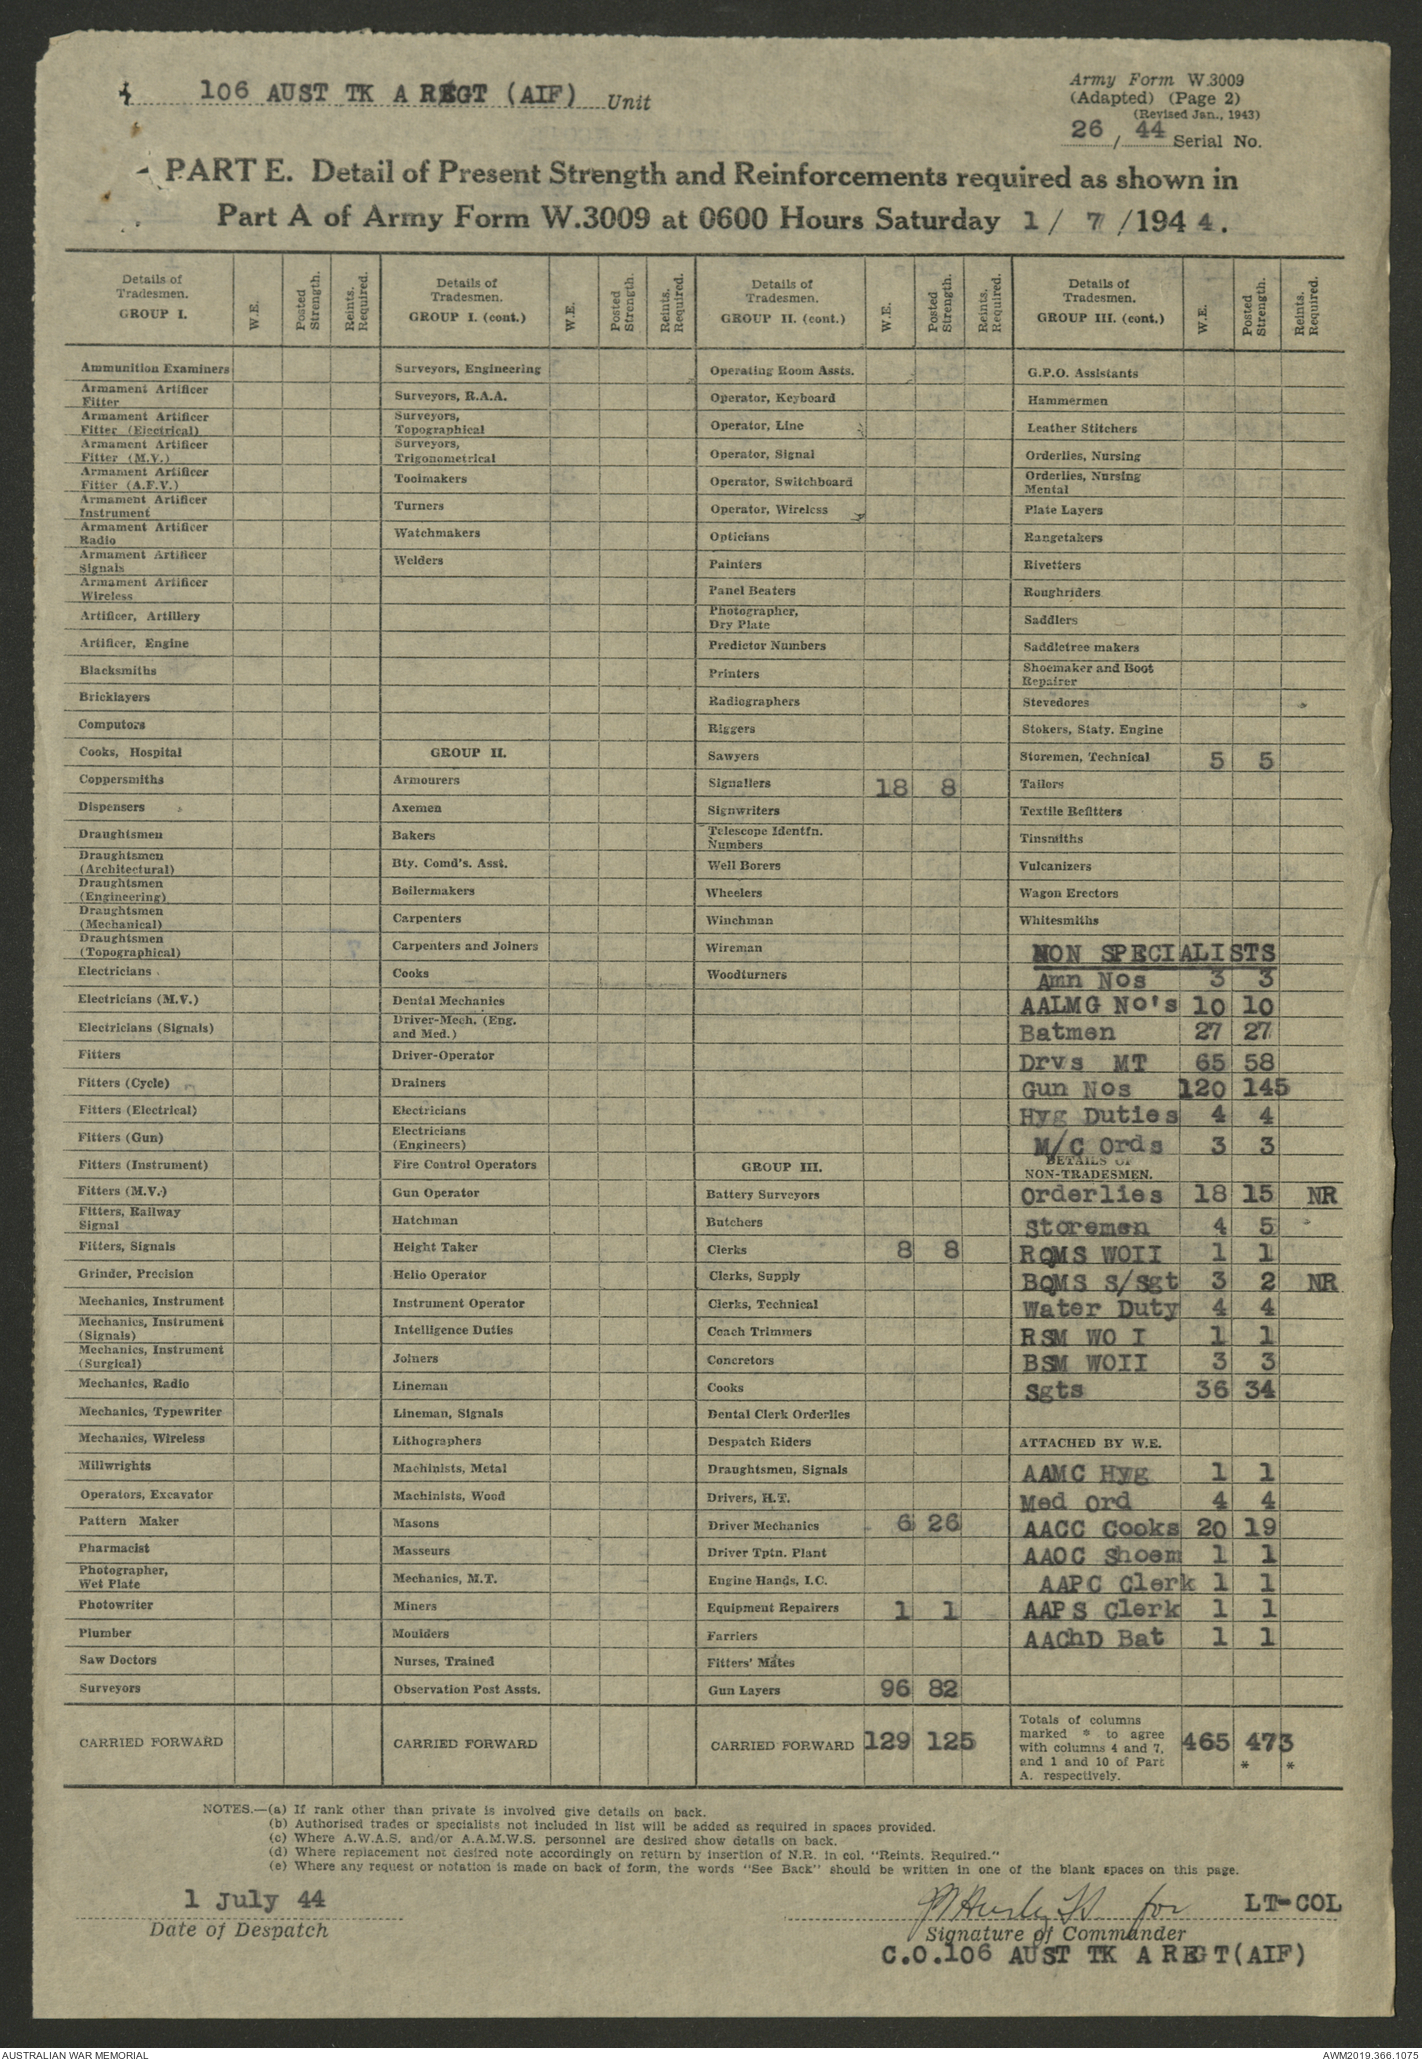 106 AUST TK A REGT (AIF) Unit
Army Form W.3009
(Adapted) (Page 2)
(Revised Jan., 1943)
26 / 44 Serial No.
PART E. Detail of Present Strength and Reinforcements required as shown in
Part A of Army Form W.3009 at 0600 Hours Saturday 1 / 7 /1944.
Details of Tradesmen. GROUP I.
W.E.
Posted Strength.
Reints. Required.
Ammunition Examiners
Armament Artificer
Fitter
Armament Artificer
Fitter (Electrical)
Armament Artificer
Fitter (M.V.)
Armament Artificer
Fitter (A.F.V.)
Armament Artificer
Instrument
Armament Artificer
Radio
Armament Artificer
Signals
Armament Artificer
Wireless
Artificer, Artillery
Artificer, Engine
Blacksmiths
Bricklayers
Computors
Cooks, Hospital
Coppersmiths
Dispensers
Draughtsmen
Draughtsmen
(Architectural)
Draughtsmen
(Engineering)
Draughtsmen
(Mechanical)
Draughtsmen
(Topographical)
Electricians
Electricians (M.V.)
Electricians (Signals)
Fitters
Fitters (Cycle)
Fitters (Electrical)
Fitters (Gun)
Fitters (Instrument)
Fitters (M.V.)
Fitters, Railway
Signal
Fitters, Signals
Grinder, Precision
Mechanics, Instrument
Mechanics, Instrument
(Signals)
Mechanics, Instrument
(Surgical)
Mechanics, Radio
Mechanics, Typewriter
Mechanics, Wireless
Millwrights
Operators, Excavator
Pattern Maker
Pharmacist
Photographer,
Wet Plate
Photowriter
Plumber
Saw Doctors
Surveyors
CARRIED FORWARD
Details of Tradesmen. GROUP I. (cont.)
W.E.
Posted Strength.
Reints. Required.
Surveyors, Engineering
Surveyors, R.A.A.
Surveyors,
Topographical
Surveyors,
Trigonometrical
Toolmakers
Turners
Watchmakers
Welders
GROUP II.
Armourers
Axemen
Bakers
Bty. Comd's. Asst.
Boilermakers
Carpenters
Carpenters and Joiners
Cooks
Dental Mechanics
Driver-Mech. (Eng.
and Med.)
Driver-Operator
Drainers
Electricians
Electricians
(Engineers)
Fire Control Operators
Gun Operator
Hatchman
Height Taker
Helio Operator
Instrument Operator
Intelligence Duties
Joiners
Lineman
Lineman, Signals
Lithographers
Machinists, Metal
Machinists, Wood
Masons
Masseurs
Mechanics, M.T.
Miners
Moulders
Nurses, Trained
Observation Post Assts.
CARRIED FORWARD
Details of Tradesmen. GROUP II. (cont.)
W.E.
Posted Strength.
Reints. Required.
Operating Room Assts.
Operator, Keyboard
Operator, Line
Operator, Signal
Operator, Switchboard
Operator, Wireless
Opticians
Painters
Panel Beaters
Photographer,
Dry Plate
Predictor Numbers
Printers
Radiographers
Riggers
Sawyers
Signallers 18 8
Signwriters
Telescope Identfn.
Numbers
Well Borers
Wheelers
Winchman
Wireman
Woodturners
GROUP III.
Battery Surveyors
Butchers
Clerks 8 8
Clerks, Supply
Clerks, Technical
Coach Trimmers
Concretors
Cooks
Dental Clerk Orderlies
Despatch Riders
Draughtsmen, Signals
Drivers, H.T.
Driver Mechanics 6 26
Driver Tptn. Plant
Engine Hands, I.C.
Equipment Repairers 1 1
Farriers
Fitters' Mates
Gun Layers 96 82
CARRIED FORWARD 129 125
Details of Tradesmen. GROUP III. (cont.)
W.E.
Posted Strength.
Reints. Required.
G.P.O. Assistants
Hammermen
Leather Stitchers
Orderlies, Nursing
Orderlies, Nursing
Mental
Plate Layers
Rangetakers
Rivetters
Roughriders
Saddlers
Saddletree makers
Shoemaker and Boot
Repairer
Stevedores
Stokers, Staty. Engine
Storemen, Technical 5 5
Tailors
Textile Refitters
Tinsmiths
Vulcanizers
Wagon Erectors
Whitesmiths
NON SPECIALISTS
Amn Nos 3 3
AALMG No's 10 10
Batmen 27 27
Drvs MT 65 58
Gun Nos 120 145
Hyg Duties 4 4
M/C Ords 3 3
DETAILS OF
NON-TRADESMEN.
Orderlies 18 15 NR
Storemen 4 5
RQMS WOII 1 1
BQMS S/Sgt 3 2 NR
Water Duty 4 4
RSM WO I 1 1
BSM WOII 3 3
Sgts 36 34
ATTACHED BY W.E.
AAMC Hyg 1 1
Med Ord 4 4
AACC Cooks 20 19
AAOC Shoem 1 1
AAPC Clerk 1 1
AAPS Clerk 1 1
AAChD Bat 1 1
Totals of columns
marked * to agree
with columns 4 and 7,
and 1 and 10 of Part
A. respectively.
465 473
* *
NOTES.—(a) If rank other than private is involved give details on back.
(b) Authorised trades or specialists not included in list will be added as required in spaces provided.
(c) Where A.W.A.S. and/or A.A.M.W.S. personnel are desired show details on back.
(d) Where replacement not desired note accordingly on return by insertion of N.R. in col. "Reints. Required."
(e) Where any request or notation is made on back of form, the words "See Back" should be written in one of the blank spaces on this page.
1 July 44
Date of Despatch
for LT-COL
Signature of Commander
C.O.106 AUST TK A REGT(AIF)
AUSTRALIAN WAR MEMORIAL
AWM2019.366.1075